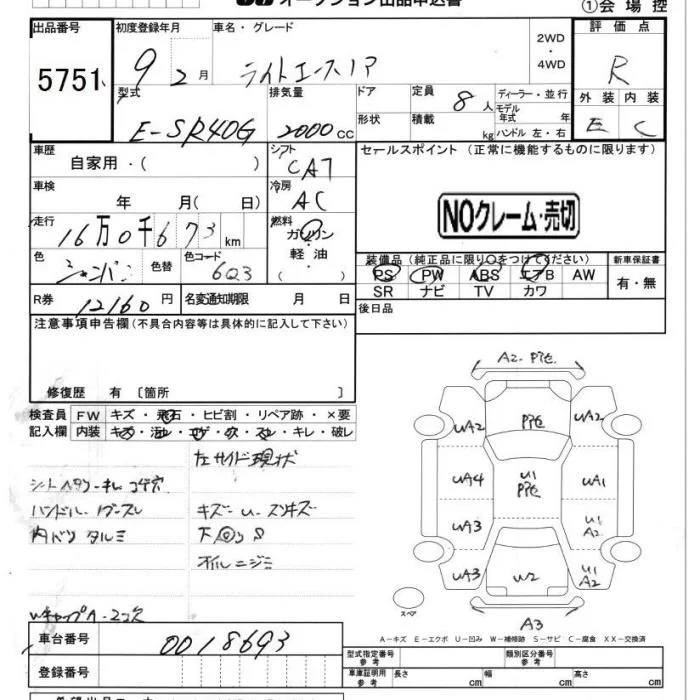 オークション出品申込書
①会場控
出品番号 初度登録年月 車名・グレード 評価点
5751 9年 2月 ライトエースノア 2WD・4WD R
型式 排気量 ドア 定員 8人 ディーラー・並行 外装 内装
E-SR40G 2000cc 形状 積載 kg モデル年式 年 ハンドル 左・右 E C
車歴 自家用・( ) シフト CAT セールスポイント (正常に機能するものに限ります)
車検 年 月( 日) 冷房 AC
NOクレーム・売切
走行 16万0千673km 燃料 ガソリン・軽油・
色 シャンパン 色替 色コード 6Q3
装備品 (純正品に限り○をつけてください) 新車保証書
PS PW ABS エアB AW 有・無
SR ナビ TV カワ
R券 12160円 名変通知期限 月 日 後日品
注意事項申告欄(不具合内容等は具体的に記入して下さい)
修復歴 有〔箇所 〕
検査員 FW キズ・飛石・ヒビ割・リペア跡・×要
記入欄 内装 キズ・汚レ・コゲ・穴・スレ・キレ・破レ
左サイド現状
シートヘタリ・キレ コゲ穴
ハンドル・ノブスレ キズ・U・スリキズ
内バリ タルミ 下回りS
オイルニジミ
Wキャップ A・2コ欠
A2・P化
UA2 P化 UA2
UA4 U1 P化 UA1
UA3 U1 A2
UA3 U2 U1 A2
スペア A3
A-キズ E-エクボ U-凹み W-補修跡 S-サビ C-腐食 XX-交換済
車台番号 0018693
型式指定番号 参考 類別区分番号 参考
登録番号 車庫証明用 参考 長さ cm 幅 cm 高さ cm